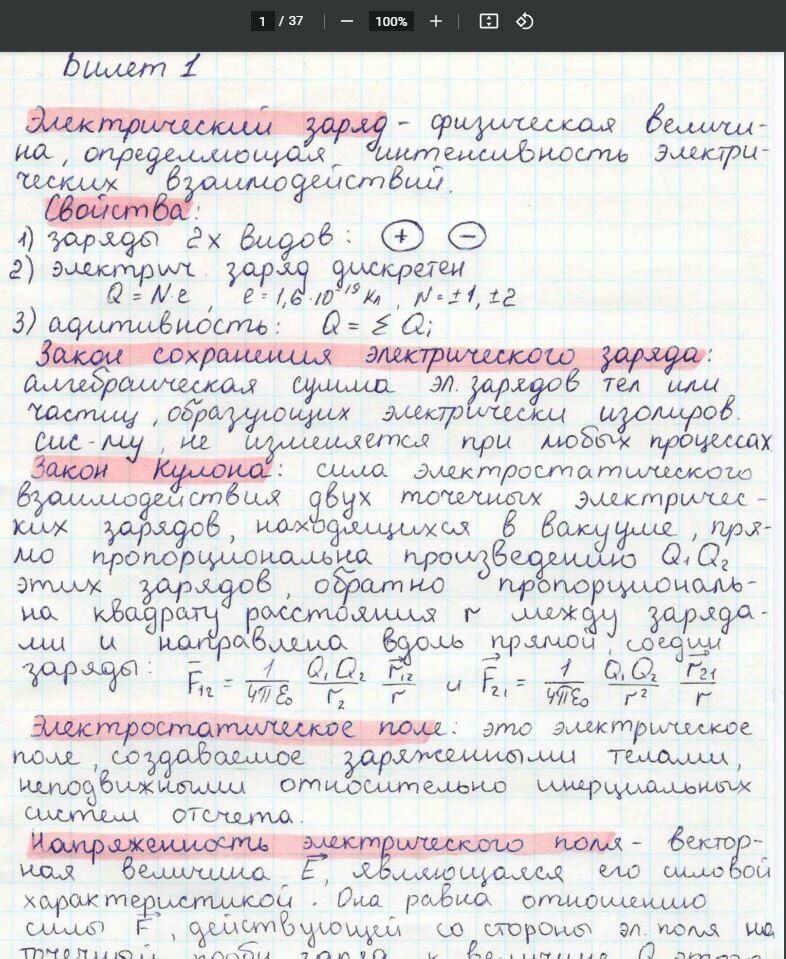 1 / 37 − 100% +
Билет 1
Электрический заряд - физическая величи-
на, определяющая интенсивность электри-
ческих взаимодействий.
Свойства:
1) заряды 2х видов: (+) (−)
2) электрич. заряд дискретен
Q = N·e, e = 1,6·10⁻¹⁹ Кл, N = ±1, ±2
3) адитивность: Q = Σ Qᵢ
Закон сохранения электрического заряда:
алгебраическая сумма эл. зарядов тел или
частиц, образующих электрически изолиров.
сис-му, не изменяется при любых процессах
Закон Кулона: сила электростатического
взаимодействия двух точечных электричес-
ких зарядов, находящихся в вакууме, пря-
мо пропорциональна произведению Q₁Q₂
этих зарядов, обратно пропорциональ-
на квадрату расстояния r между заряда-
ми и направлена вдоль прямой, соедин
заряды: F̄₁₂ = 1/4πε₀ Q₁Q₂/r₂ r⃗₁₂/r и F⃗₂₁ = 1/4πε₀ Q₁Q₂/r² r⃗₂₁/r
Электростатическое поле: это электрическое
поле, создаваемое заряженными телами,
неподвижными относительно инерциальных
систем отсчета.
Напряженность электрического поля - вектор-
ная величина E⃗, являющаяся его силовой
характеристикой. Она равна отношению
силы F⃗, действующей со стороны эл. поля на
точечный пробн заряд к величине Q этого